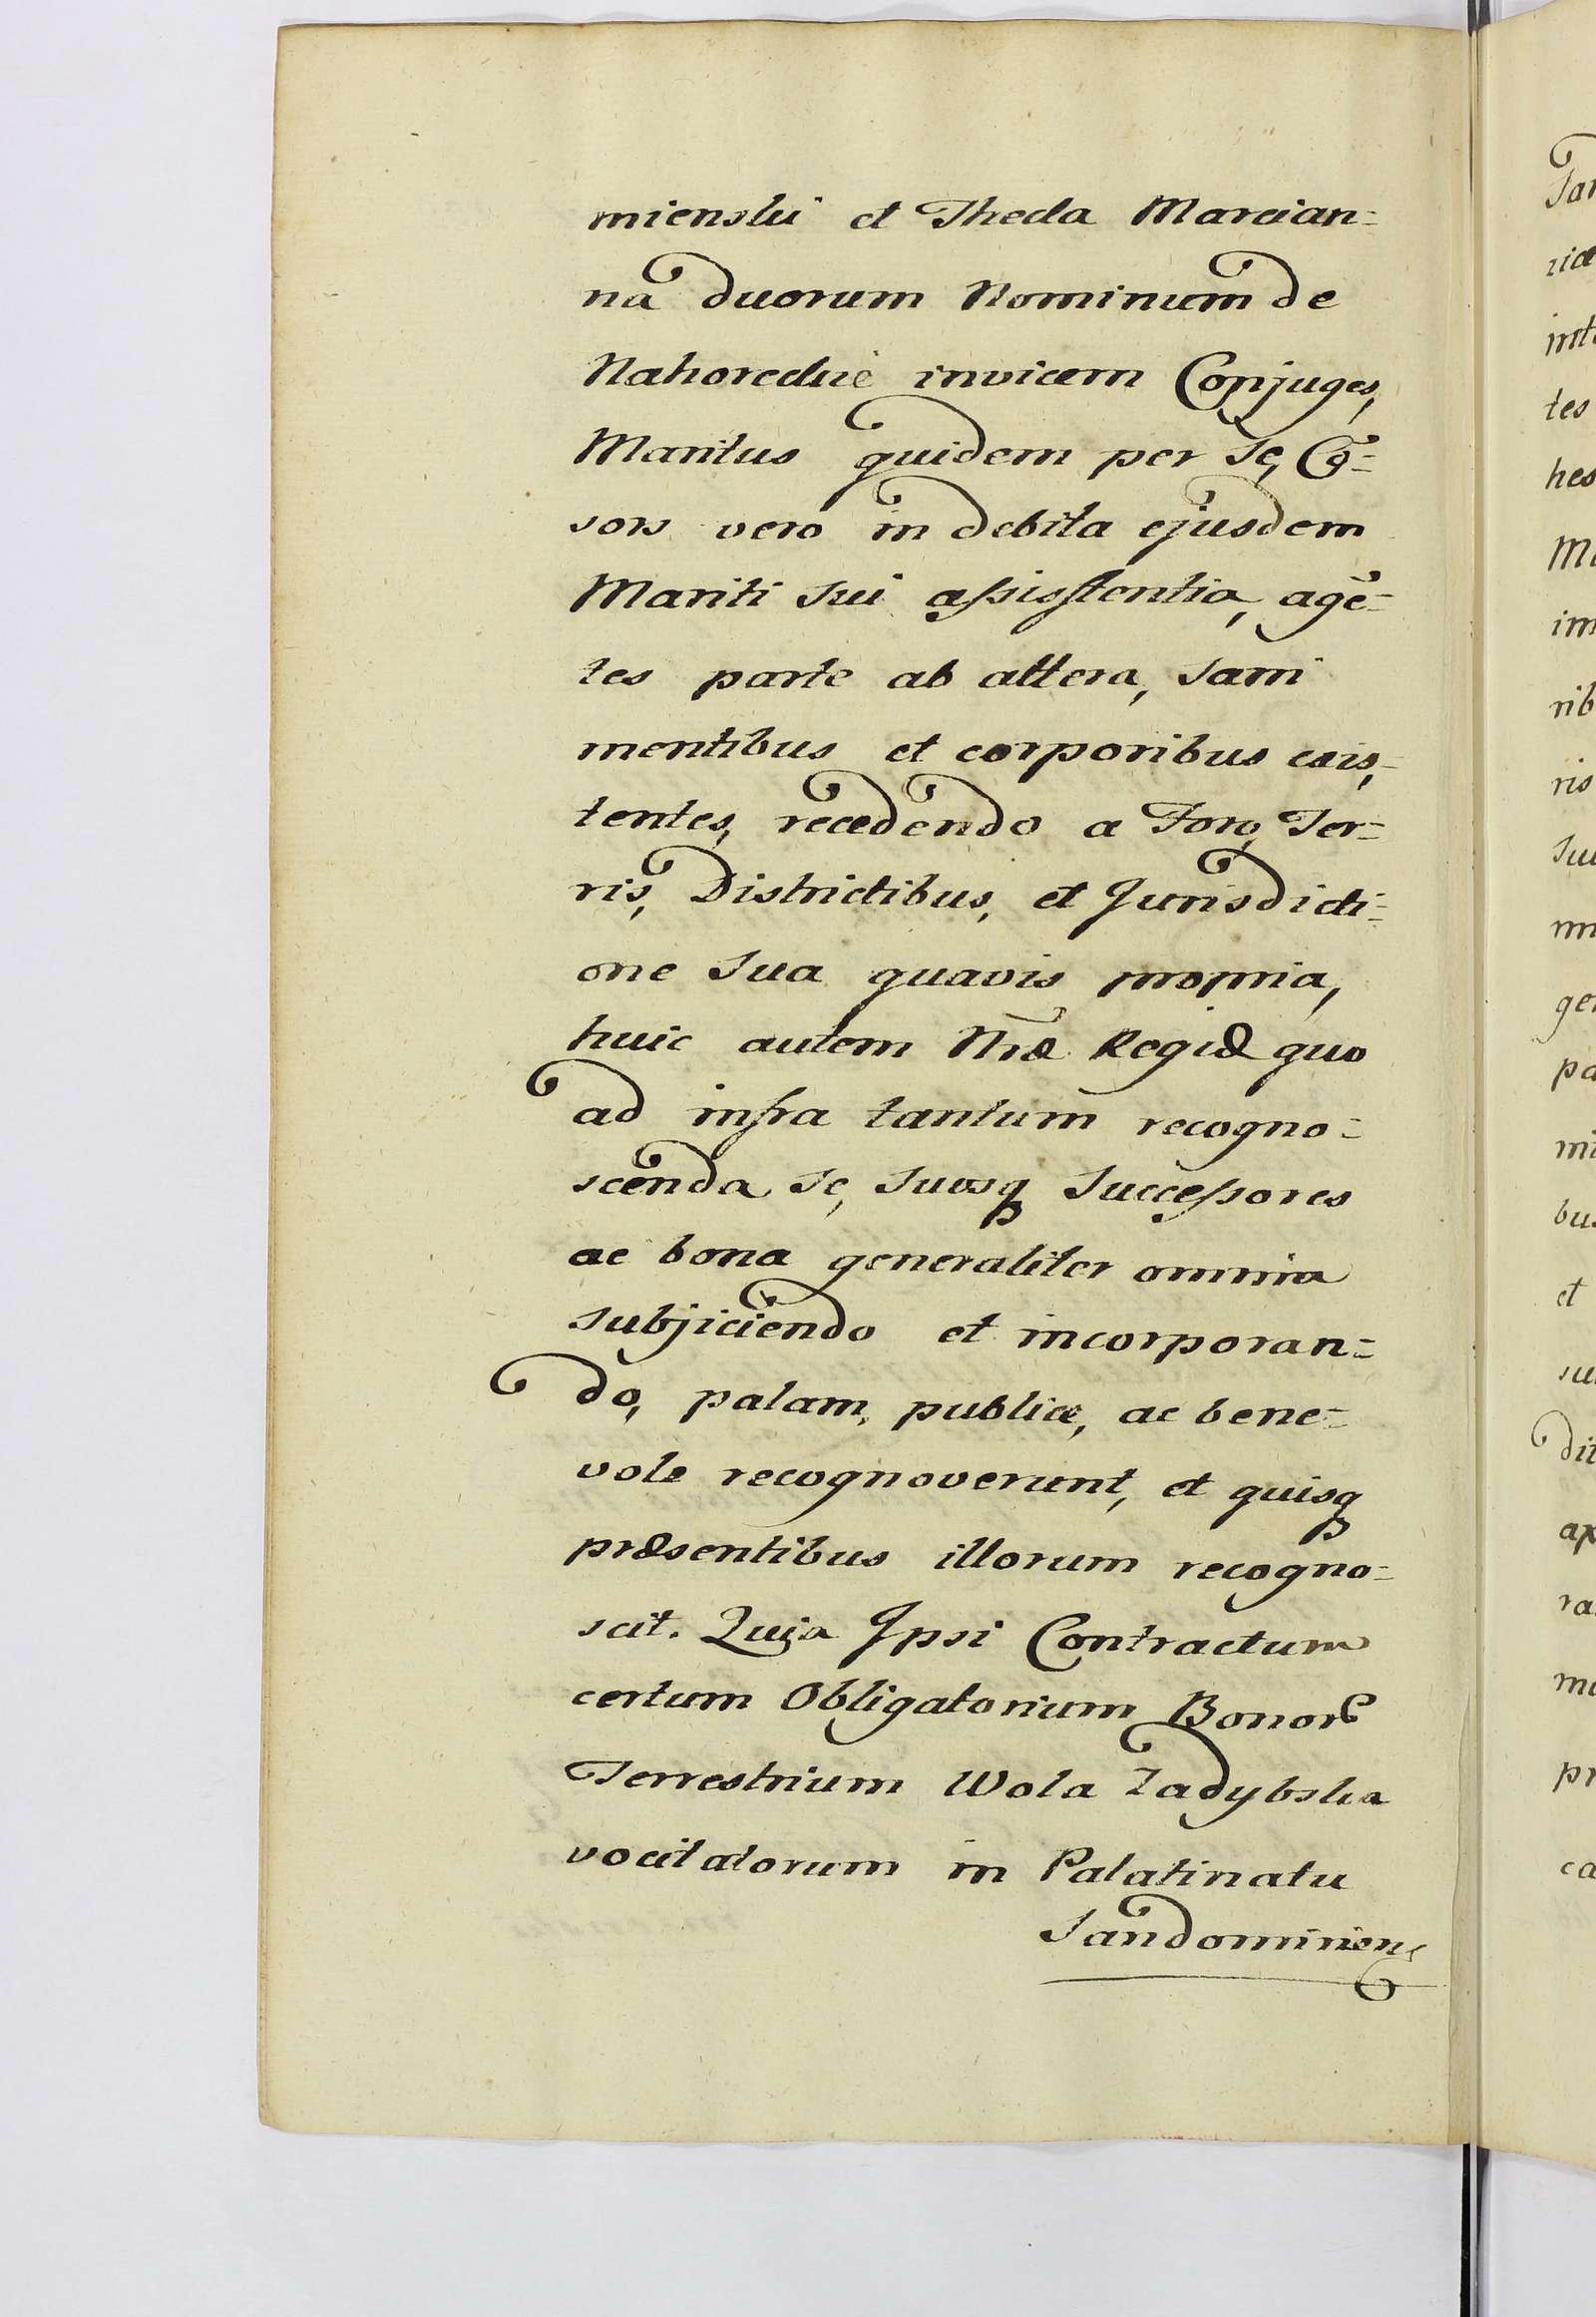 mienski et Thecla Marcian=
na duorum Nominum de
Nahoreckie invicem Conjuges,
Maritus quidem per Se, Cō=
sors vero in debita ejusdem
Mariti Sui assisstentia, agē=
tes parte ab altera, Sani
mentibus et corporibus exis,=
tentes, recedendo a Foro, Ter=
ris, Districtibus, et Jurisdicti=
one Sua quavis propria,
huic autem Nræ Regiæ quo
ad infra tantum recogno=
scenda Se, Suosq Successores
ac bona generaliter omnia
subjiciendo et incorporan=
do, palam, publice, ac bene=
vole recognoverunt, et quisq
præsentibus illorum recogno=
scit. Quia Ipsi Contractum
certum Obligatorium Bonor
Terrestrium Wola Zadybska
vocitatorum in Palatinatu
Sandomiriens